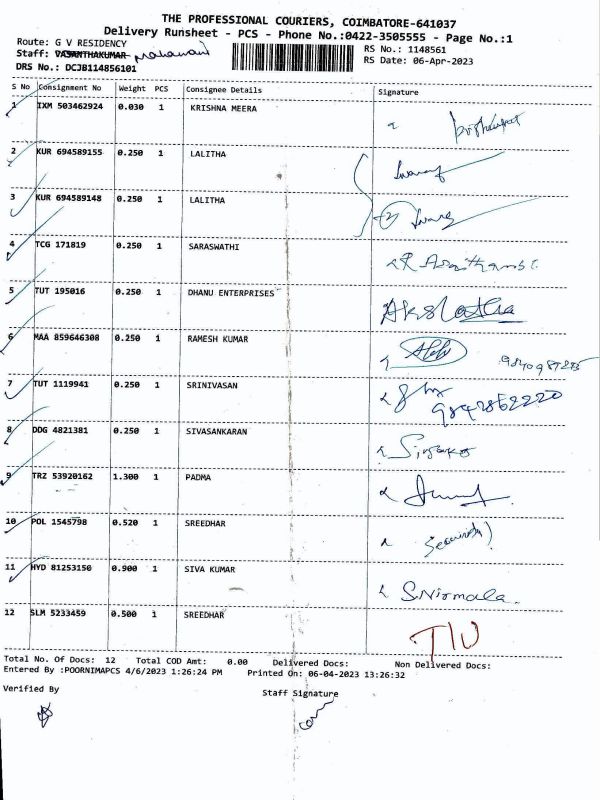 THE PROFESSIONAL COURIERS, COIMBATORE-641037
Delivery Runsheet - PCS - Phone No.:0422-3505555 - Page No.:1
Route: G V RESIDENCY
RS No.: 1148561
Staff: VASANTHAKUMAR
RS Date: 06-Apr-2023
DRS No.: DCJB114856101
S No Consignment No Weight PCS Consignee Details Signature
1 IXM 503462924 0.030 1 KRISHNA MEERA
2 KUR 694589155 0.250 1 LALITHA
3 KUR 694589148 0.250 1 LALITHA
4 TCG 171819 0.250 1 SARASWATHI
5 TUT 195016 0.250 1 DHANU ENTERPRISES
6 MAA 859646308 0.250 1 RAMESH KUMAR
7 TUT 1119941 0.250 1 SRINIVASAN
8 DDG 4821381 0.250 1 SIVASANKARAN
9 TRZ 53920162 1.300 1 PADMA
10 POL 1545798 0.520 1 SREEDHAR
11 HYD 81253150 0.900 1 SIVA KUMAR S.Nirmala.
12 SLM 5233459 0.500 1 SREEDHAR
Total No. Of Docs: 12 Total COD Amt: 0.00 Delivered Docs: Non Delivered Docs:
Entered By :POORNIMAPCS 4/6/2023 1:26:24 PM Printed On: 06-04-2023 13:26:32
Verified By
Staff Signature